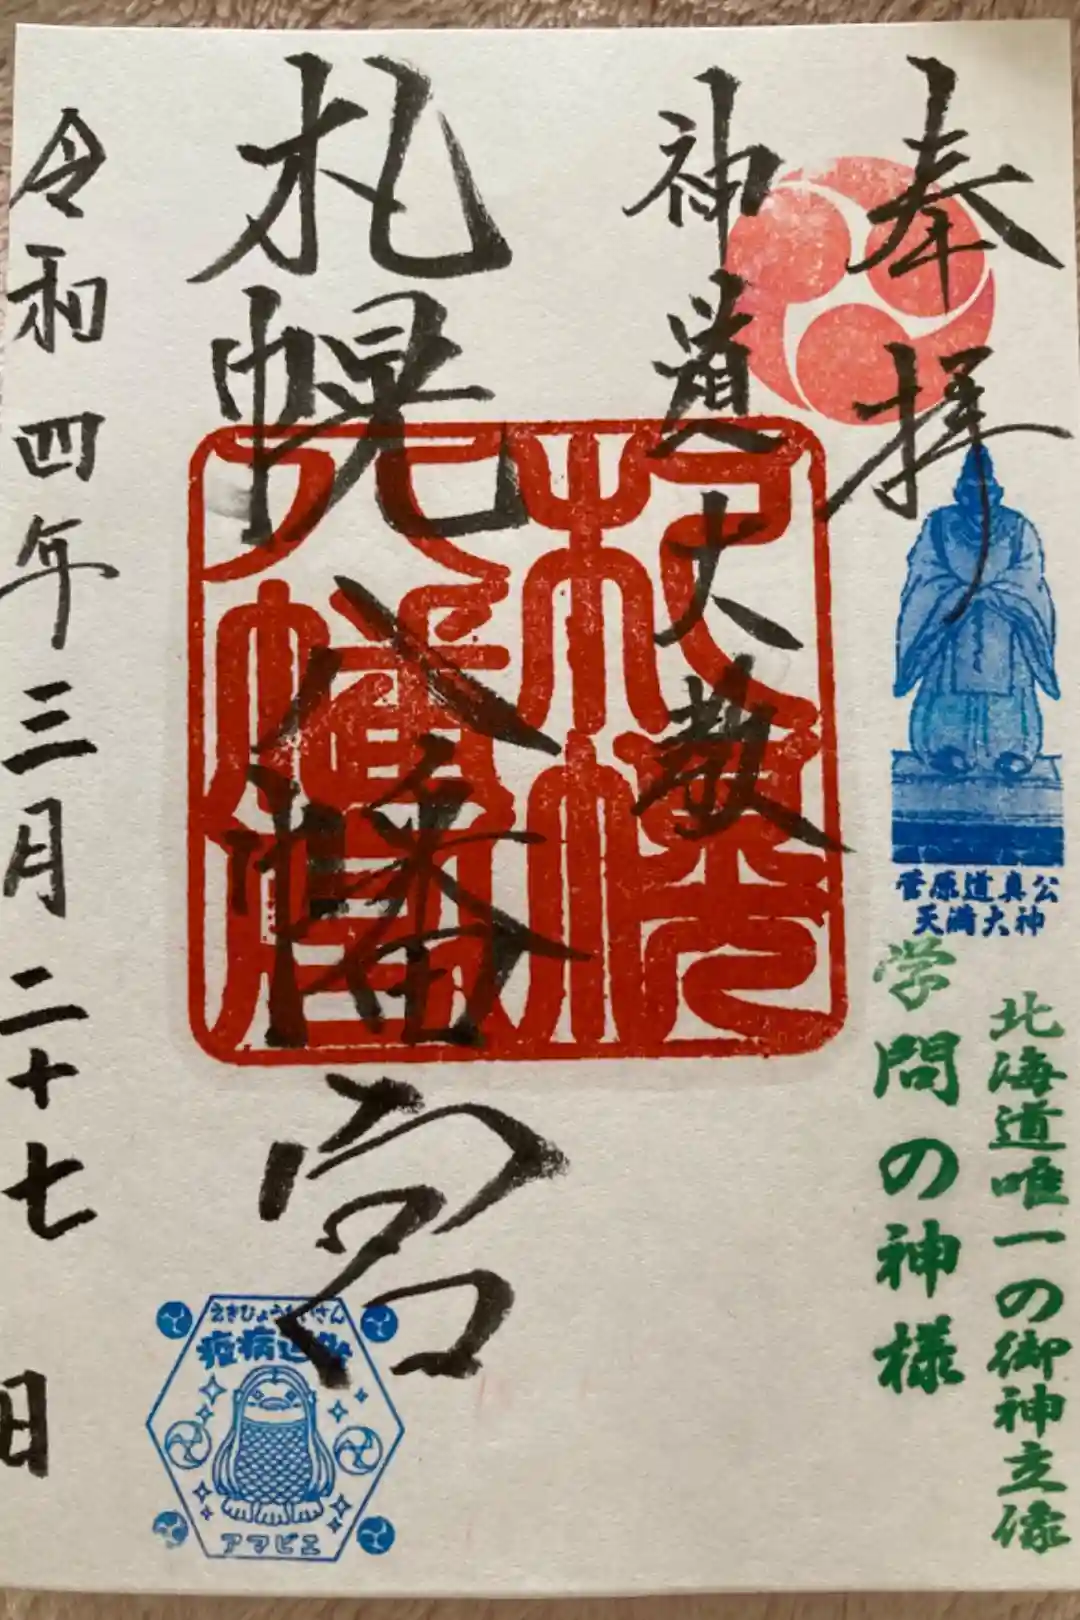 奉拝
神道大教
札幌八幡宮
令和四年三月二十七日
札幌
八幡宮
菅原道真公
天満大神
北海道唯一の御神立像
学問の神様
えきびょうたいさん
疫病退散
アマビエ